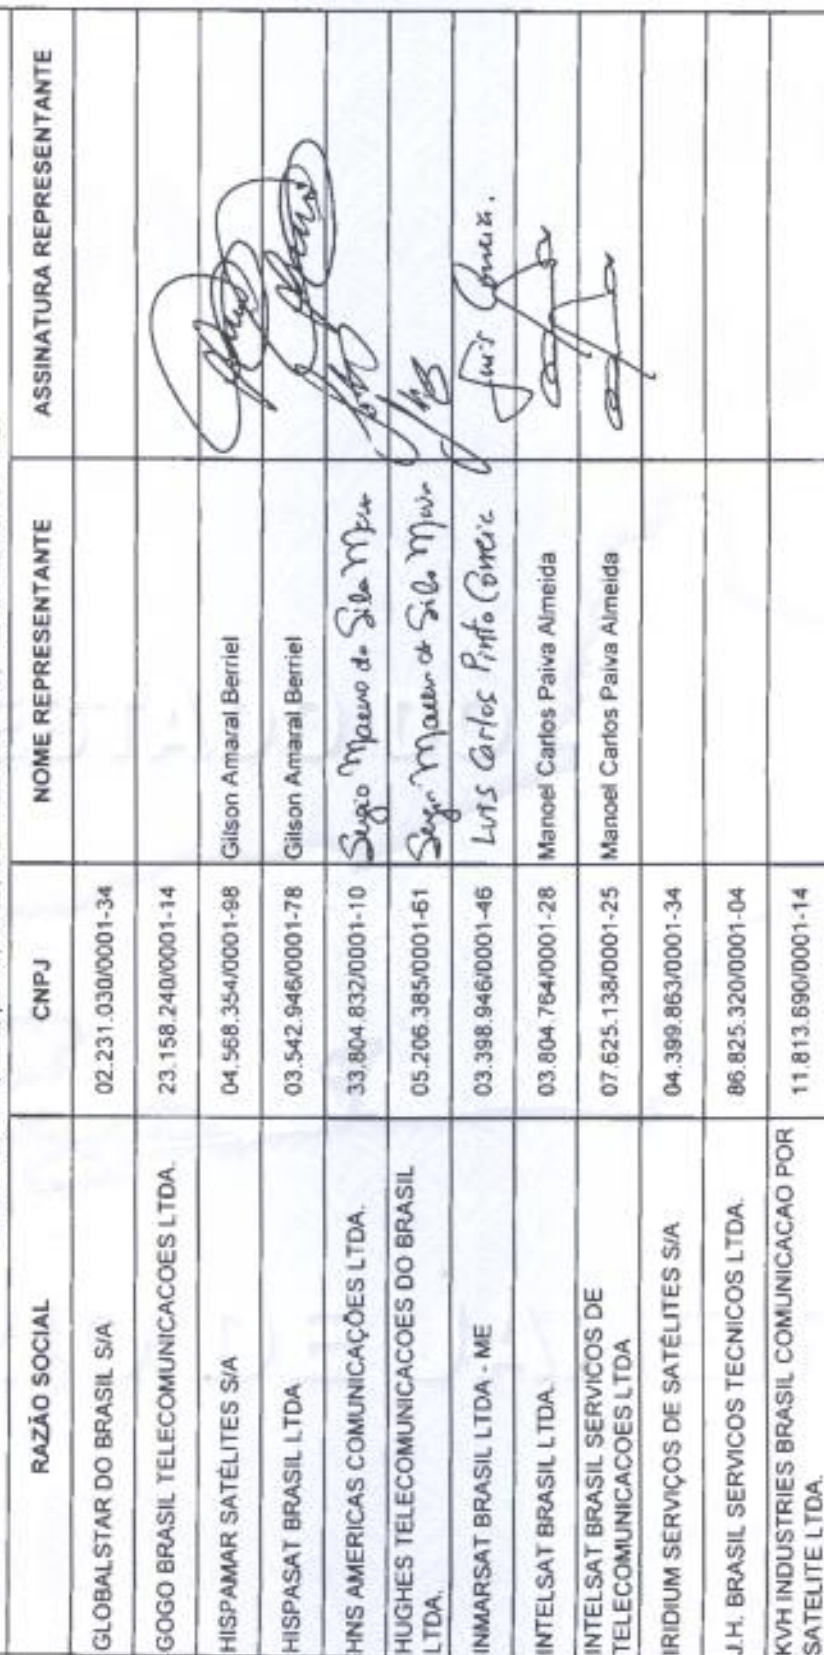 RAZÃO SOCIAL CNPJ NOME REPRESENTANTE ASSINATURA REPRESENTANTE
GLOBALSTAR DO BRASIL S/A 02.231.030/0001-34
GOGO BRASIL TELECOMUNICACOES LTDA. 23.158.240/0001-14
HISPAMAR SATÉLITES S/A 04.568.354/0001-98 Gilson Amaral Berriel
HISPASAT BRASIL LTDA 03.542.946/0001-78 Gilson Amaral Berriel
HNS AMERICAS COMUNICAÇÕES LTDA. 33.804.832/0001-10 Sergio da Silva
HUGHES TELECOMUNICACOES DO BRASIL
LTDA. 05.206.385/0001-61 Sergio
INMARSAT BRASIL LTDA - ME 03.398.946/0001-46 Luis Carlos Pinto Correia Luis Correia.
INTELSAT BRASIL LTDA. 03.804.764/0001-28 Manoel Carlos Paiva Almeida
INTELSAT BRASIL SERVICOS DE
TELECOMUNICACOES LTDA 07.625.138/0001-25 Manoel Carlos Paiva Almeida
IRIDIUM SERVIÇOS DE SATÉLITES S/A 04.399.863/0001-34
J.H. BRASIL SERVICOS TECNICOS LTDA. 86.825.320/0001-04
KVH INDUSTRIES BRASIL COMUNICACAO POR
SATELITE LTDA. 11.813.690/0001-14